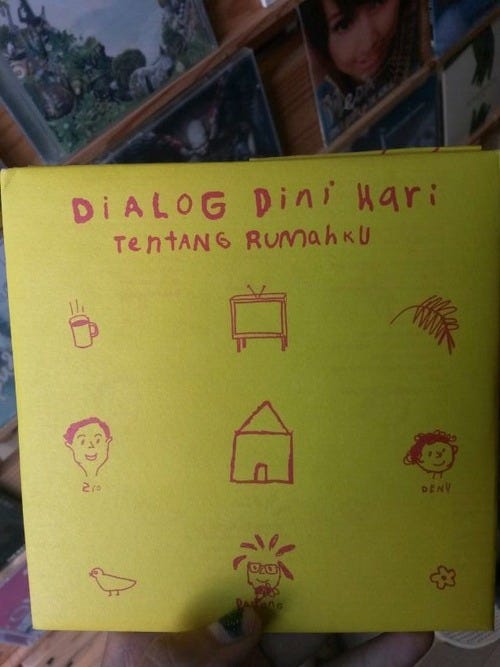 DiALOG Dini Hari
TentANG RUMahKU
Zio
DENY